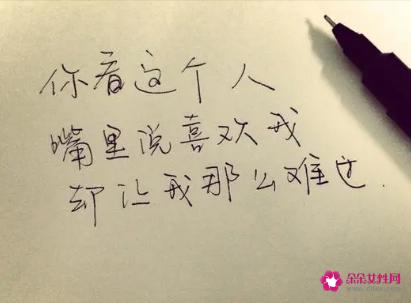 你看这个人
嘴里说喜欢我
却让我那么难过.
朵朵女性网